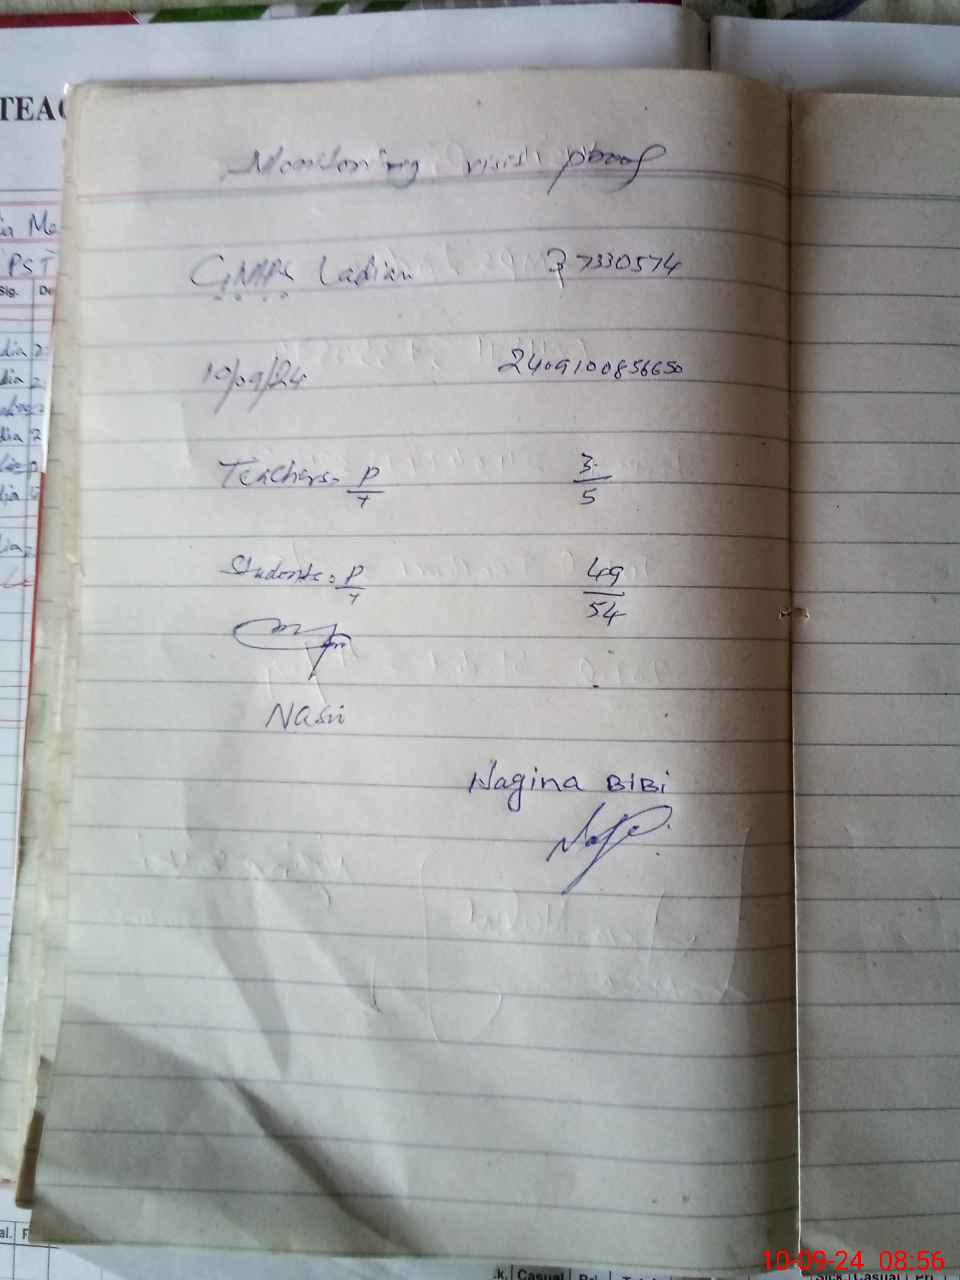 TEAC
Monitoring visit proof
GMPS Ladian 37330574
10/09/24 2409100856650
Teachers = P/T 3/5
Students = P/T 49/54
Nasir
Nagina BiBi
PST
Sig. De
10-09-24 08:56
k. Casual
Sick Casual